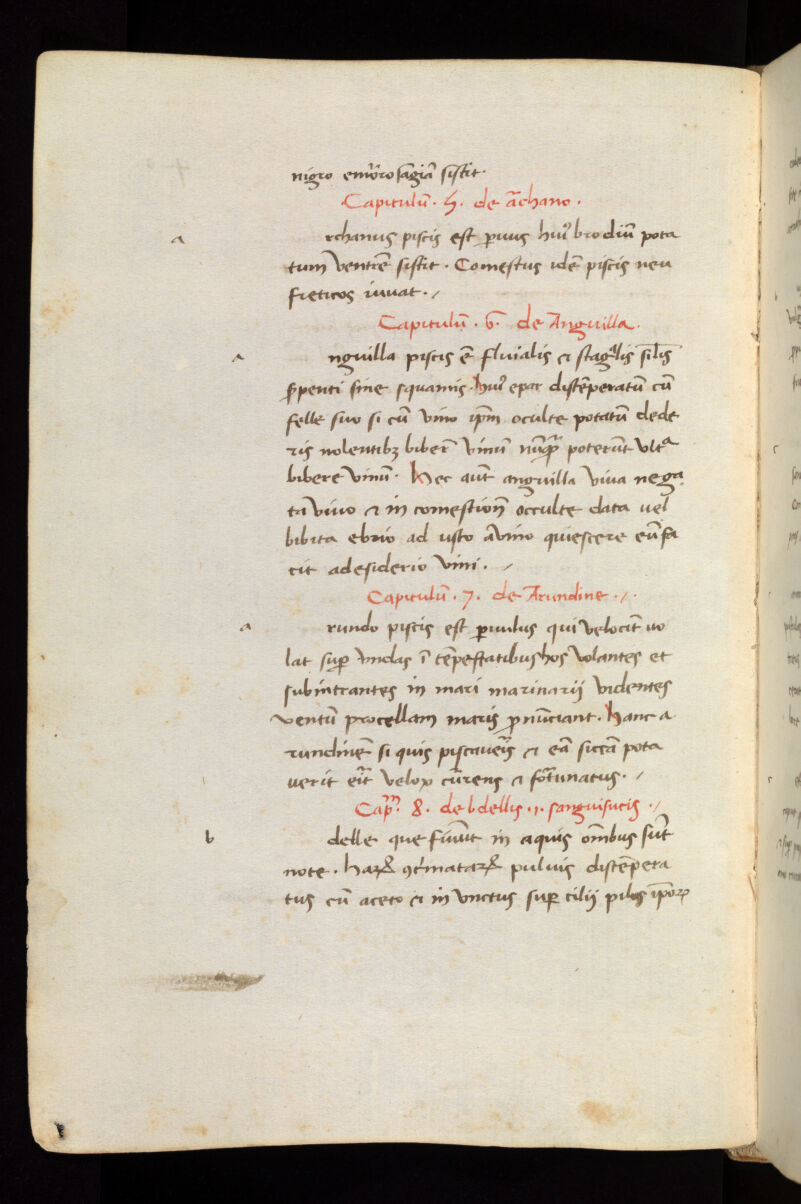 nigro emorosagiā sistit.
Capitulū . 5 . de achano .
a rchanus piscis est pvus huiꝰ brodiū pota
tum ventrē sistit . Comestus idē piscis neu
freticos iuuat . /
Capitulū . 6 . de Anguilla .
a nguilla piscis ē fluuialis et stagⁿlis sil̄is
serpenti sine squamis . huiꝰ epar distēperatū cū
felle suo si cū vino ip̄m occulte potatū dede
ris nolentibꝫ biber̄ vinū nūqꝫ poterūt vltᵃ
bibere vinū . hec aūt anguilla viua nega
ta viuo et in comestion̄ occulte data uel
bibita ebrio ad usto a vino quiescere eū fa
cit adesiderio vini . /
Capitulū . 7 . de Arundine . / .
a rundo piscis est paruulus qui velocit̄ uo
lat sup vndas ī tēpestatibus hos volantes et
subintrantes in mari marinarii videntes
ventū procellam maris pnūciant . hanc a
rundinē si quis piscaueris et eā siccā pota
uerit erit velox currens et fortunatus . /
Cap . 8 . de bdellis . i . sanguisucis . /
b delle que fiunt in aquis om̄ibus sūt
note . haꝝ cͥmataꝝ puluis distēpera
tus cū aceto et in vnctus sup cilii pilos ip̄oꝝ